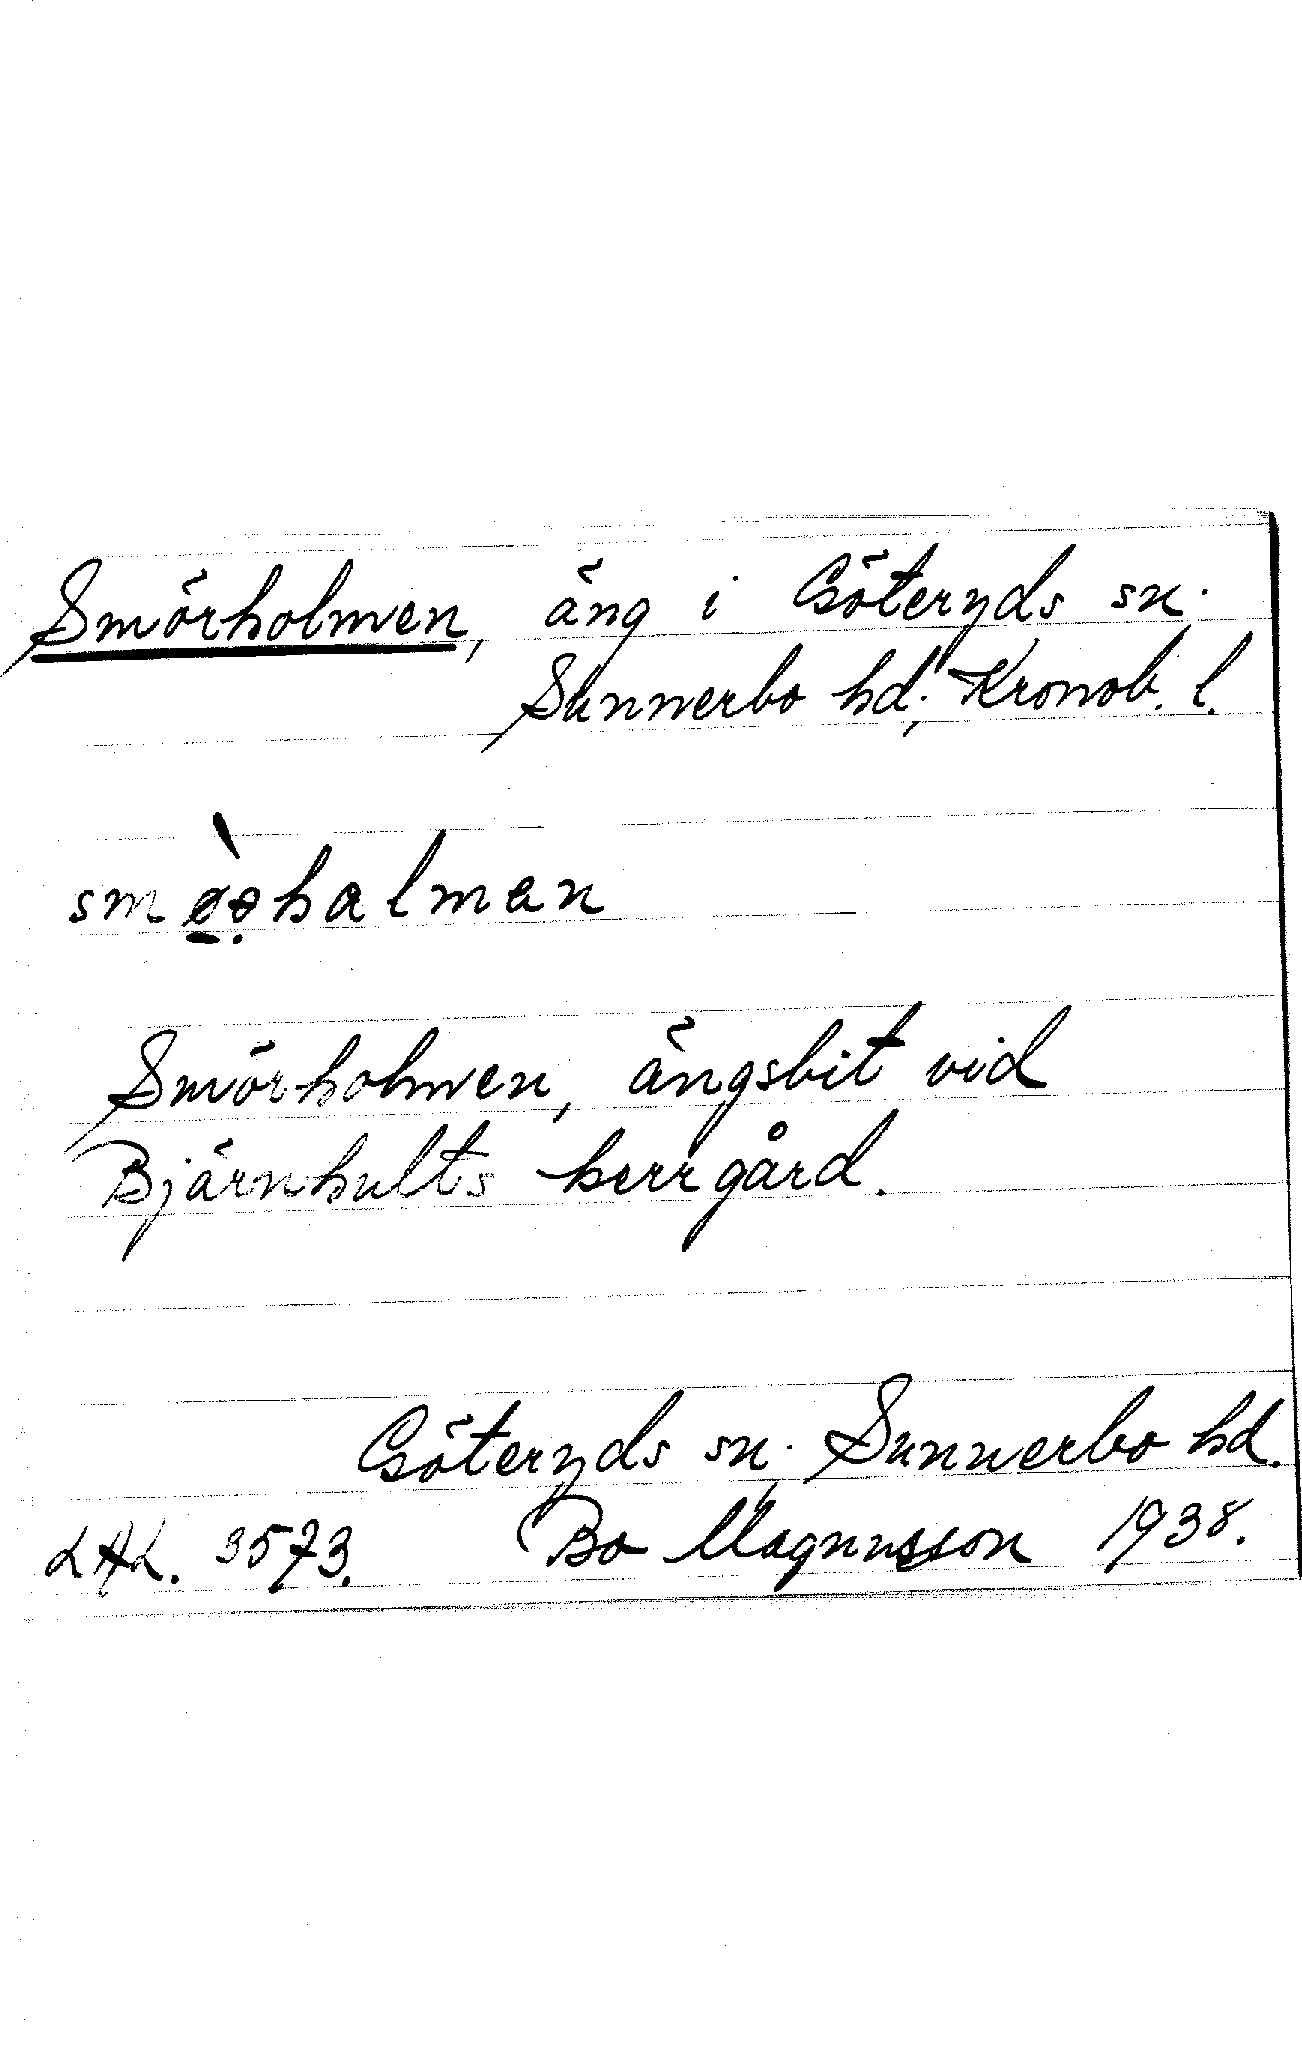 Smörholmen, äng i Göteryds sn.
Sunnerbo hd, Kronob. l.
smø̠̀ə̣halmen
Smörholmen, ängsbit vid
Bjärnhults herrgård.
Göteryds sn. Sunnerbo hd.
LAL. 3573. Bo Magnusson 1938.